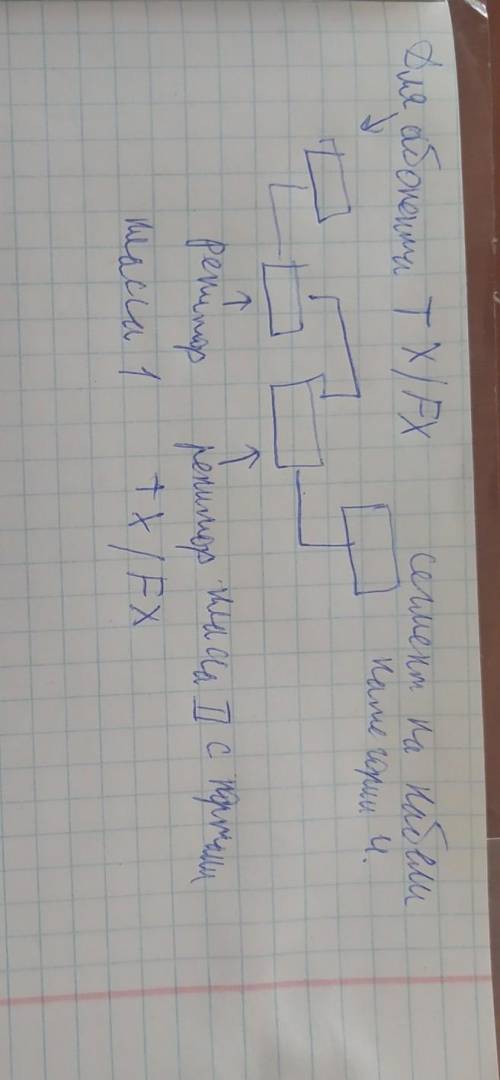 Для абонента TX/FX
сегмент на кабели
категории 4.
репитор
класса 1
репитор класса II с портами
TX/FX